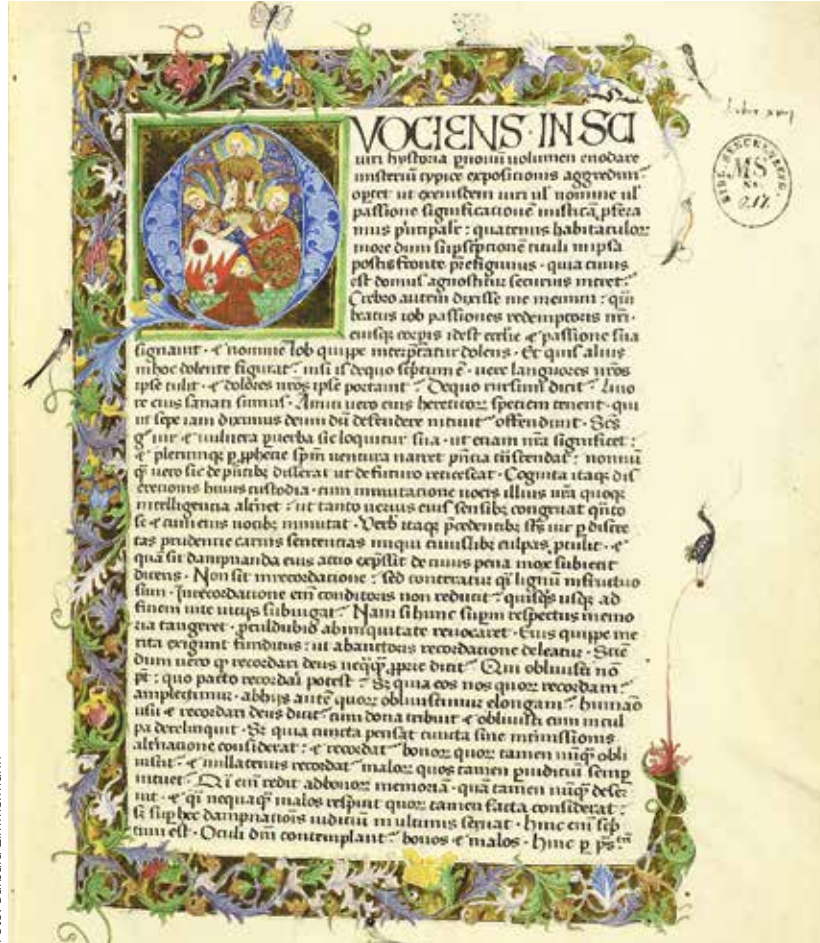 VOCIENS · IN SCI
uiri hystoria p nouū uolumen enodare
misteriū typice expositionis aggredimr
oportet ut ex eiusdem uiri ul nomine ul
passione significatione mistica psera
mus principale : quatenus habitaculoꝝ
more dum superscriptionē tituli in ipsa
postis fronte prefigimus · quia cuius
est domus agnoscitur securius intret
Crebro autem dixisse me memini : qui
beatus iob passiones redemptoris nri
eiusq corpis idest ecclie & passione sua
signauit · & nomine Iob quippe interpratur dolens · Et quis alius
in hoc dolente figurat nisi is de quo scriptum ē · uere languores nros
ipse tulit · & dolores nros ipse portauit De quo rursum dicit Liuo
re eius sanati sumus · Amici uero eius hereticoꝝ speciem tenent · qui
ut sepe iam diximus deum dū defendere nitunt offendunt · Scs
uir & uulnera uerba sic loquitur sua · ut etiam nra significet :
& plerumque p pphetie spm uentura narret
uero sic de disserat ut de futuro reticescat · Cognita itaq dis
cretionis huius custodia · cum mutacione uocis illius nra quoq
intelligencia alrnet : ut tanto uerius eius sensibꝫ congruat qnto
se & cum eius uocibꝫ mutat · itaq precedentibꝫ scs uir p discre
tas prudentie carnis sentencias iniqui cuiuslibꝫ culpas ptulit · &
qua sit dampnanda eius actio expssit de cuius pena mox subiecit
dicens · Non sit in recordacione : sed conteratur qi lignū infructuo
sum · In recordacione em conditoris non reducit quisqs usq ad
finem uite uicijs subiugat Nam si hunc supni respectus memo
ria tangeret · pculdubio ab iniquitate reuocaret · Eius quippe me
rita exigunt funditus : ut ab auctoris recordacione deleatur · Scien
dum uero q recordari deus neqqꝗ pprie dicit Qui obliuisci nō
pt : quo pacto recordari potest Sꝫ quia eos nos quoꝝ recordam
amplectimur · ab hijs autē quoꝝ obliuiscimur elongam humano
usu & recordari deus dicit cum dona tribuit & obliuisci cum in cul
pa derelinquit · Sꝫ quia cuncta pensat cuncta sine intmissionis
alrnacione considerat : & recordat bonoꝝ quoꝝ tamen nuqꝗ obli
uiscit · & nullatenus recordat maloꝝ quos tamen p iudiciū semp
intuet Qi em redit ad bonoꝝ memoriā · quā tamen nuqꝗ dese
rut · & qi nequaqꝗ malos respicit quoꝝ tamen facta considerat :
sꝫ sup hec dampnacionis iudiciū in ultimis seruat · Hinc em scp
tum est · Oculi dni contemplant bonos & malos · Hinc p
MS
Nr.